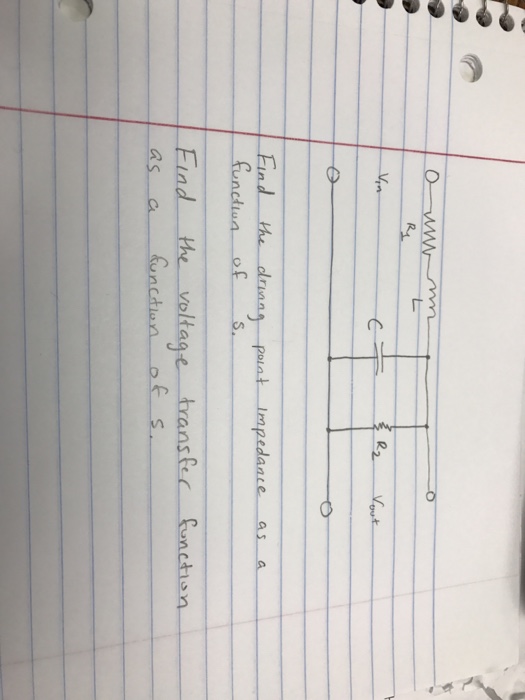 R1
L
Vin
C
R2
Vout
Find the driving point impedance as a
function of s.
Find the voltage transfer function
as a function of s.